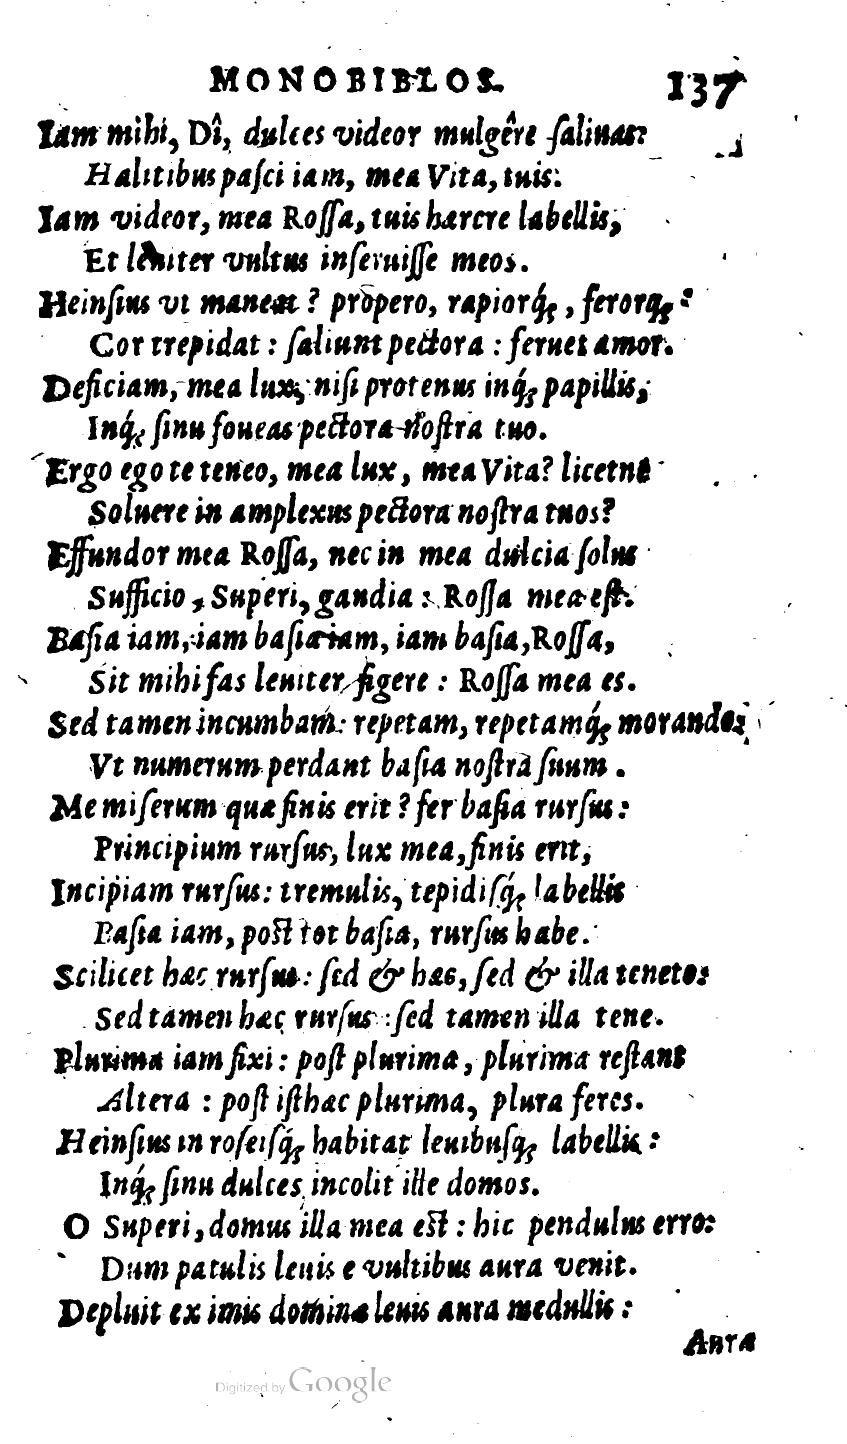 MONOBIBLOS. 137
Iam mihi, Dî, dulces videor mulgêre ſalinas?
Halitibus paſci iam, mea Vita, tuis:
Iam videor, mea Roſſa, tuis hærere labellis,
Et leniter vultus inſeruiſſe meos.
Heinſius vt maneat? propero, rapiorq́;, ferorq;:
Cor trepidat: ſaliunt pectora: feruet amor.
Deficiam, mea lux, niſi protenus inq́; papillis,
Inq́; ſinu foueas pectora noſtra tuo.
Ergo ego te teneo, mea lux, mea Vita? licetne
Soluere in amplexus pectora noſtra tuos?
Effundor mea Roſſa, nec in mea dulcia ſolus
Sufficio, Superi, gaudia: Roſſa mea eſt.
Baſia iam, iam baſia iam, iam baſia, Roſſa,
Sit mihi fas leniter figere: Roſſa mea es.
Sed tamen incumbam: repetam, repetamq́; morando:
Vt numerum perdant baſia noſtra ſuum.
Me miſerum quæ finis erit? fer baſia rurſus:
Principium rurſus, lux mea, finis erit,
Incipiam rurſus: tremulis, tepidiſq́; labellis
Baſia iam, poſt tot baſia, rurſus habe.
Scilicet hæc rurſus: ſed & hæc, ſed & illa teneto:
Sed tamen hæc rurſus: ſed tamen illa tene.
Plurima iam fixi: poſt plurima, plurima reſtant
Altera: poſt iſthæc plurima, plura feres.
Heinſius in roſeiſq́; habitat leuibuſq; labellis:
Inq́; ſinu dulces incolit ille domos.
O Superi, domus illa mea eſt: hic pendulus erro:
Dum patulis leuis e vultibus aura venit.
Depluit ex imis dominæ leuis aura medullis:
Aura
Digitized by Google